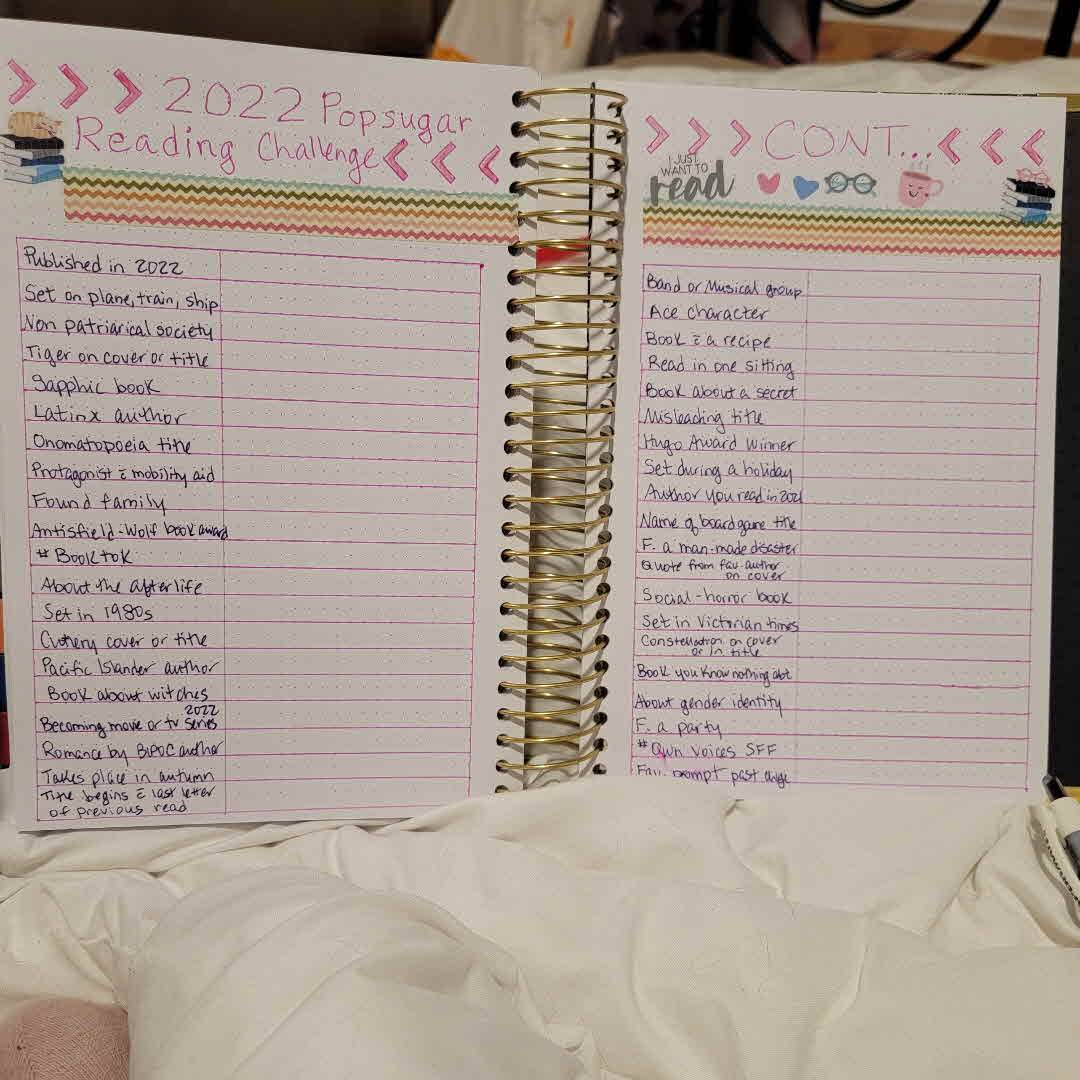 2022 Popsugar
Reading Challenge
Published in 2022
Set on plane, train, ship
Non patriarical society
Tiger on cover or title
Sapphic book
Latinx author
Onomatopoeia title
Protagonist c̄ mobility aid
Found family
Antisfield-Wolf book award
# Booktok
About the afterlife
Set in 1980s
Cutlery cover or title
Pacific Islander author
Book about witches
2022
Becoming move or tv series
Romance by BIPOC author
Takes place in autumn
Title begins c̄ last letter
of previous read
CONT...
I JUST
WANT TO
read
Band or Musical group
Ace character
Book c̄ a recipe
Read in one sitting
Book about a secret
Misleading title
Hugo Award Winner
Set during a holiday
Author you read in 2021
Name of board game title
F. a man-made disaster
Quote from fav. author
on cover
Social-horror book
Set in Victorian times
Constellation on cover
or in title
Book you know nothing abt
About gender identity
F. a party
# Own Voices SFF
Fav. prompt past